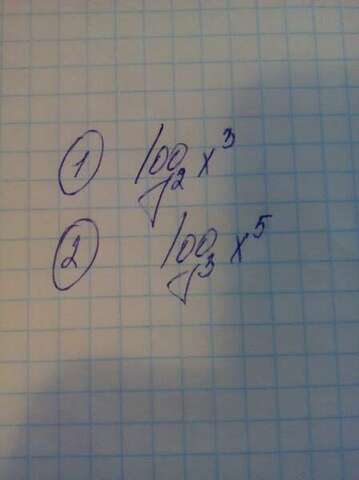 ① log₂ x³
② log₃ x⁵